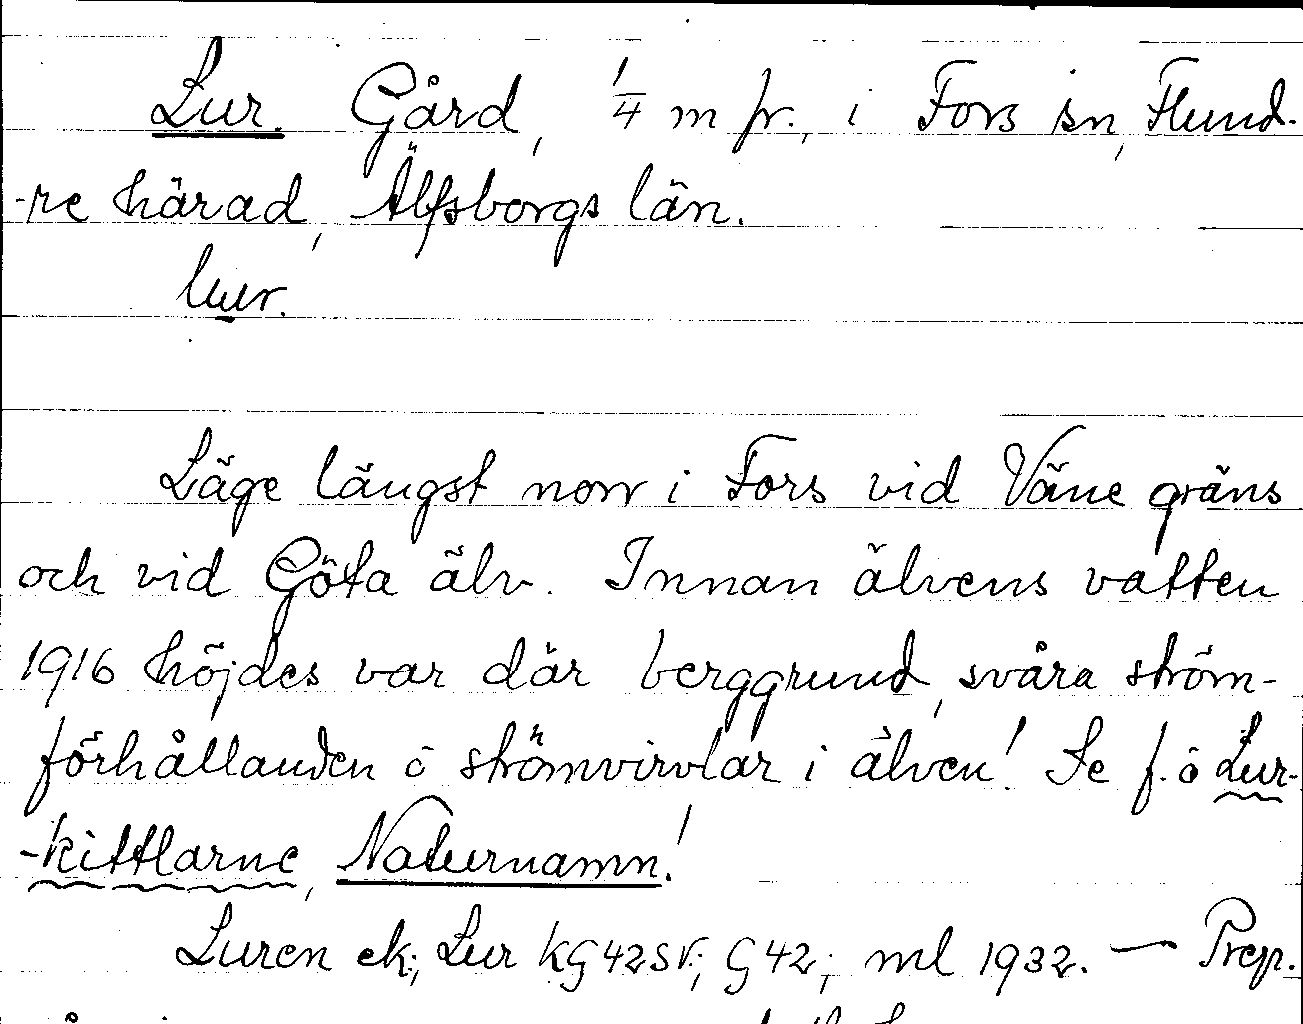 Lur. Gård, 1/4 m fr., i Fors sn, Flund-
-re härad, Älfsborgs län.
lur.
Läge längst norr i Fors vid Väne gräns
och vid Göta älv. Innan älvens vatten
1916 höjdes var där berggrund, svåra ström-
förhållanden o strömvirvlar i älven! Se f. ö Lur-
-kittlarne, Naturnamn!
Luren ek; Lur KG42SV; G42; ml 1932. — Prep.